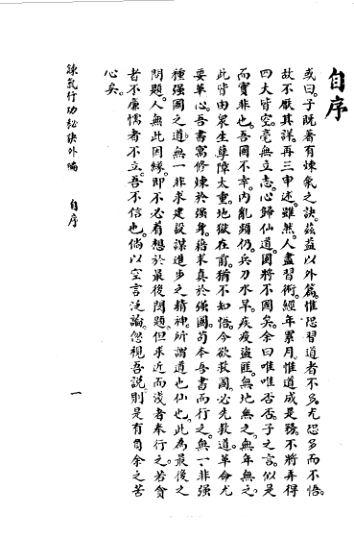 自序
或曰。子既著有煉氣之訣。茲益以外篇。惟恐習道者不多。尤恐多而不悟。
故不厭其詳。再三申述。雖然。人盡習術。經年累月。惟道成是務。不將弄得
四大皆空。毫無立志。心歸仙道。國將不國矣。余曰唯唯否否。子之言。似是
而實非也。吾國不幸。內亂頻仍。兵刀水旱。疾疫盜匪。無地無之。無年無之。
此皆由衆生孽障太重。地獄在前。猶不知悟。今欲救國。必先救道。革命尤
要革心。吾書寓修煉於强身。藉求真於强國。苟本吾書而行之。無一非强
種强國之道。無一非求建設謀進步之精神。所謂道也仙也。此為最後之
問題。人無此因緣。即不必着想於最後問題。但求近而淺者奉行之。若貪
者不廉。懦者不立。吾不信也。倘以空言泛論。忽視吾說。則是有負余之苦
心矣。
鍊氣行功秘訣外編 自序 一